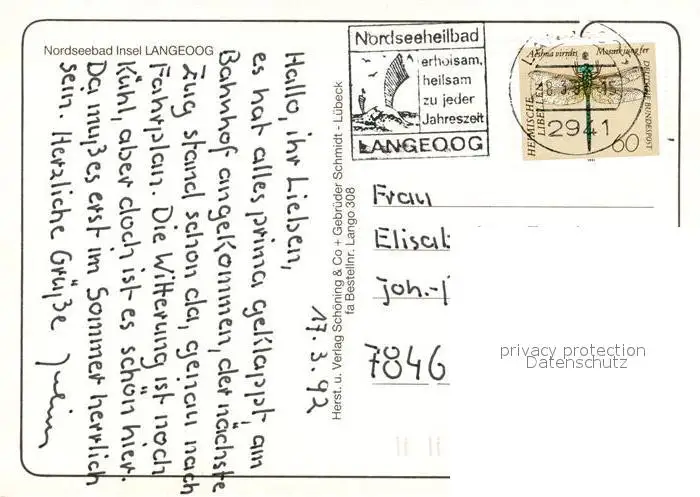 Nordseebad Insel LANGEOOG
Hallo, ihr Lieben,
es hat alles prima geklappt, am
Bahnhof angekommen, der nächste
Zug stand schon da, genau nach
Fahrplan. Die Witterung ist noch
Kühl, aber doch ist es schön hier.
Da muß es erst im Sommer herrlich
sein. Herzliche Grüße
17.3.92
Herst. u. Verlag Schöning & Co + Gebrüder Schmidt - Lübeck
fa Bestellnr. Lango 308
Nordseeheilbad
erholsam,
heilsam
zu jeder
Jahreszeit
LANGEOOG
2941
Aeshna viridis Mosaikjungfer
HEIMISCHE
LIBELLEN
DEUTSCHE BUNDESPOST
60
Frau
Elisab
Joh.-
7046
privacy protection
Datenschutz